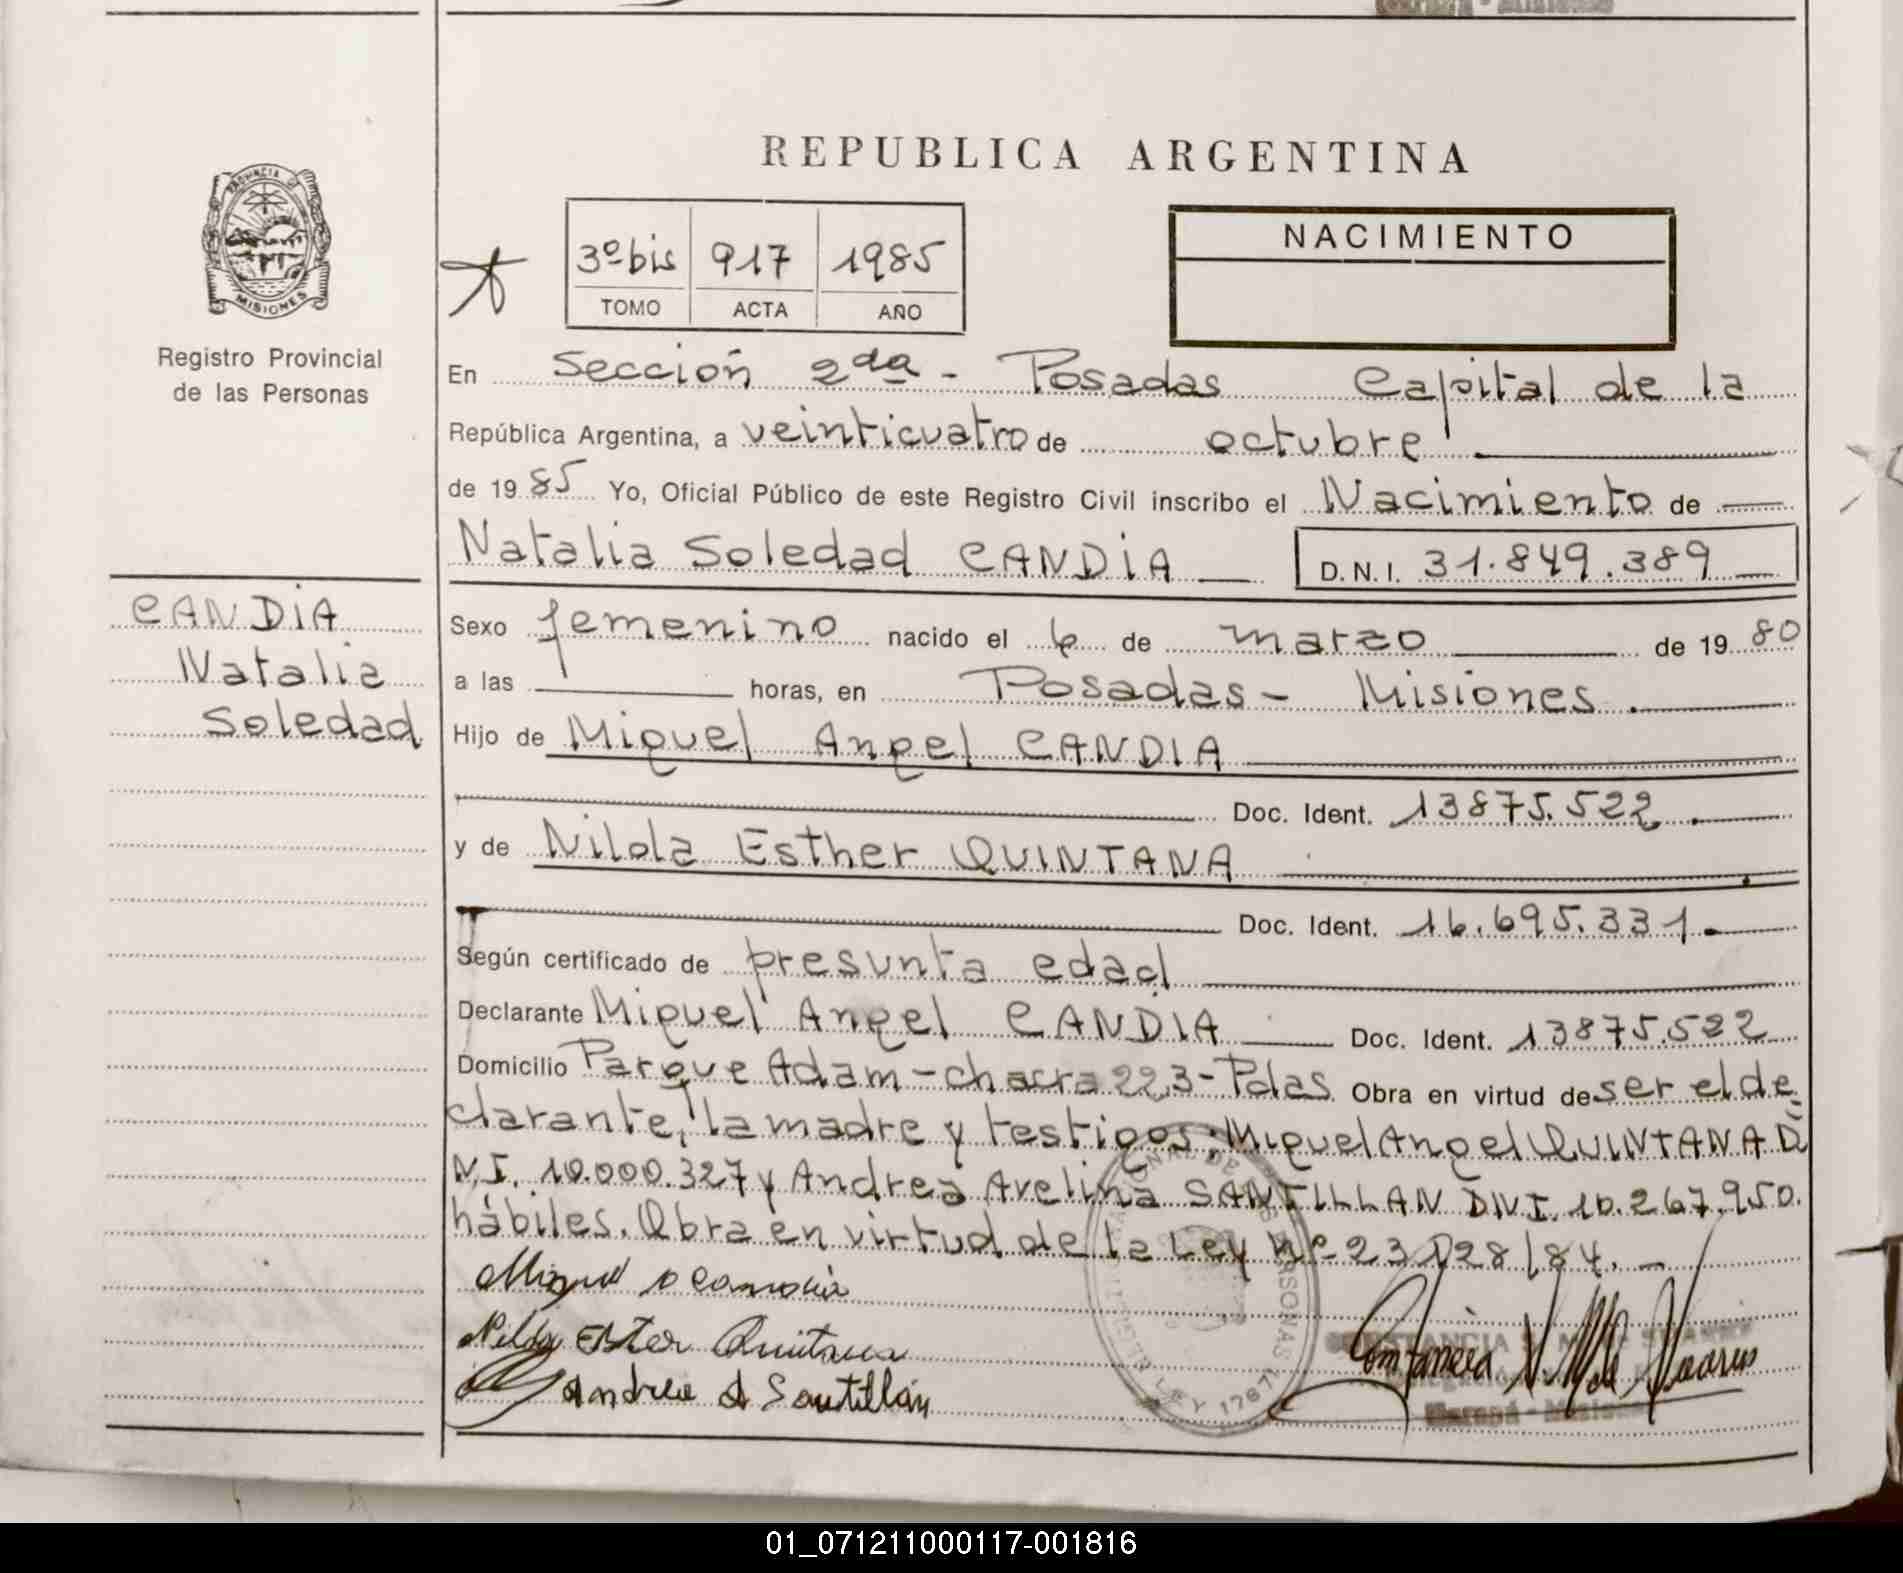 REPUBLICA ARGENTINA
PROVINCIA DE
MISIONES
Registro Provincial
de las Personas
3º bis 917 1985
TOMO ACTA AÑO
NACIMIENTO
En Sección 2da - Posadas Capital de la
República Argentina, a veinticuatro de octubre
de 1985 Yo, Oficial Público de este Registro Civil inscribo el Nacimiento de
Natalia Soledad CANDIA D.N.I. 31.849.389
CANDIA
Natalia
Soledad
Sexo femenino nacido el 6 de marzo de 1980
a las horas, en Posadas - Misiones.
Hijo de Miguel Angel CANDIA
Doc. Ident. 13875.522.
y de Nilda Esther QUINTANA
Doc. Ident. 16.695.331.
Según certificado de presunta edad
Declarante Miguel Angel CANDIA Doc. Ident. 13875.522
Domicilio Parque Adam - chacra 223 - Pdas Obra en virtud de ser el de
clarante, la madre y testigos; Miguel Angel QUINTANA D.
N.I. 10.000.327 y Andrea Avelina SANTILLAN DNI. 10.267.950.
hábiles. Obra en virtud de la Ley Nº 23128/84. -
Nilda Ester Quintana
Andrea A Santillán
LEY 17671
01_071211000117-001816